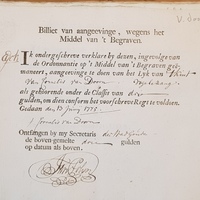 Billiet van aangeevinge, wegens het
Middel van 't Begraven.
Ik ondergeschreve verklart by dezen, ingevolge van
de Ordonnantie op 't Middel van 't Begraven geë-
maneert, aangevinge te doen van het Lyk van
van Cornelis van Doorn
als gehorende onder de Classis van drie
gulden, om dien conform het voorschreve Regt te voldoen.
Gedaan den 13 Juny 1775
Cornelis van Doorn
Ontfangen by my Secretaris
de boven-gemelte drie gulden
op datum als boven.